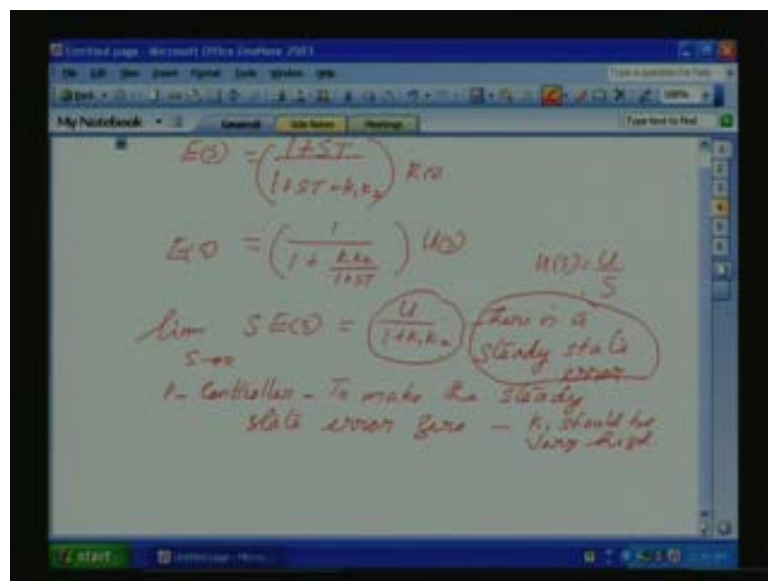 Untitled page - Microsoft Office OneNote 2003
File Edit View Insert Format Tools Window Help
Type a question for help
Back
100%
My Notebook
General
Side Notes
Meetings
Type text to find
E(s) = (1+ST / 1+ST+K₁K₂) R(s)
E(s) = (1 / 1 + K₁K₂/1+ST) U(s)
U(s) = U/S
lim S→0 S E(s) = U / 1+K₁K₂
There is a
steady state
error
P- Controller - To make the steady
state error zero - K₁ should be
very high
start